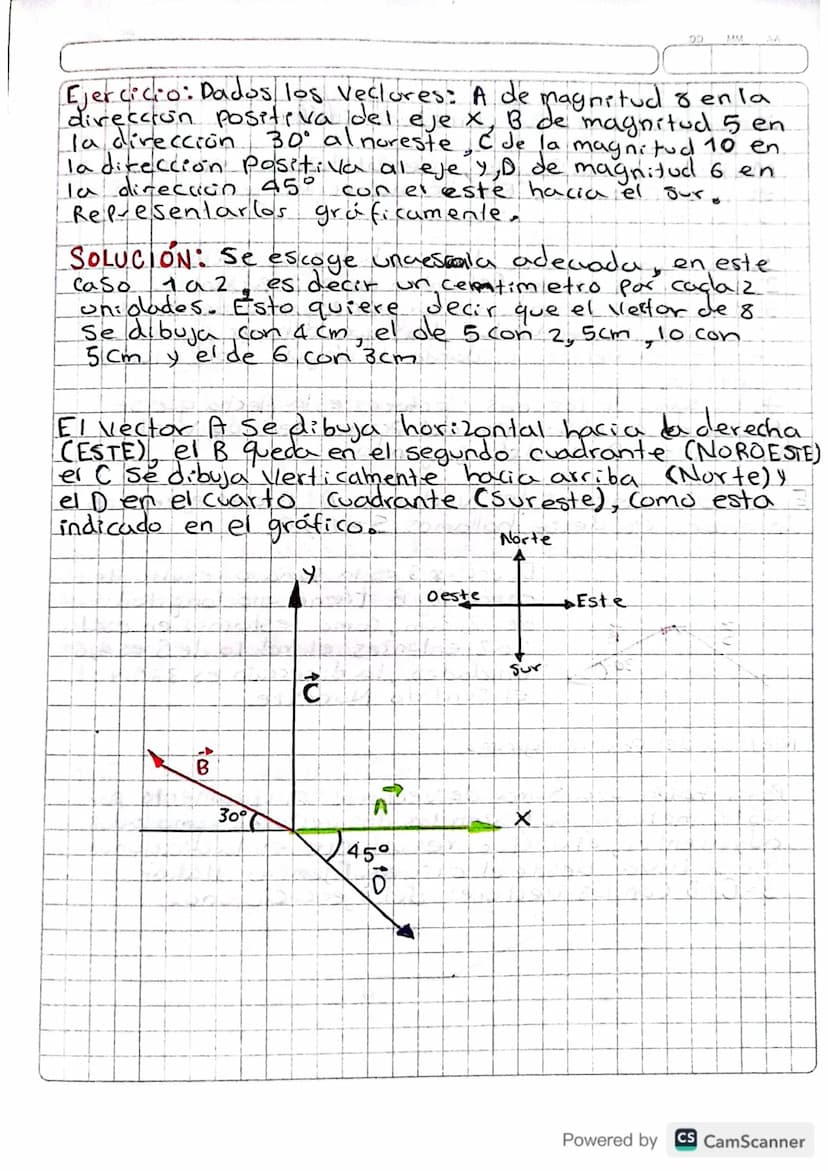 DD MM AA
Ejercicio: Dados los Vectores: A de magnitud 8 en la
dirección positiva del eje x, B de magnitud 5 en
la dirección 30° al noreste, C de la magnitud 10 en
la dirección positiva al eje y, D de magnitud 6 en
la dirección 45° con el este hacia el sur.
Representarlos gráficamente.
SOLUCIÓN: Se escoge una escala adecuada, en este
caso 1 a 2, es decir un centimietro por cada 2
unidades. Esto quiere decir que el vector de 8
se dibuja con 4 cm, el de 5 con 2,5cm, 10 con
5cm y el de 6 con 3cm
El vector A se dibuja horizontal hacia la derecha
(ESTE), el B queda en el segundo cuadrante (NOROESTE)
el C se dibuja verticalmente hacia arriba (Norte) y
el D en el cuarto cuadrante (Sureste), como esta
indicado en el gráfico.
Norte
Oeste
Este
Sur
y
C
B
30°
A
x
45°
D
Powered by CS CamScanner